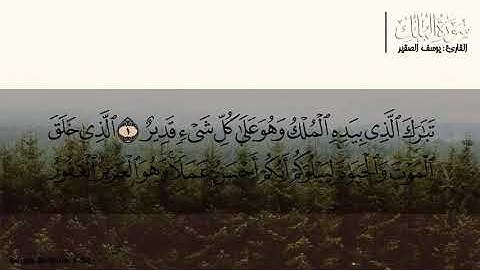 سورة الملك
القارئ: يوسف الصقير
تَبَارَكَ الَّذِي بِيَدِهِ الْمُلْكُ وَهُوَ عَلَىٰ كُلِّ شَيْءٍ قَدِيرٌ ١ الَّذِي خَلَقَ
الْمَوْتَ وَالْحَيَاةَ لِيَبْلُوَكُمْ أَيُّكُمْ أَحْسَنُ عَمَلًا وَهُوَ الْعَزِيزُ الْغَفُورُ